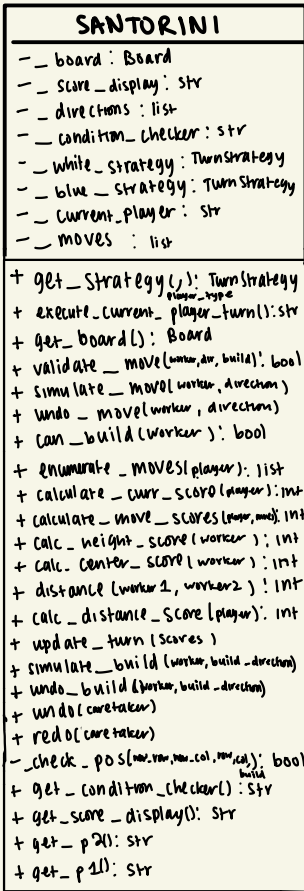 SANTORINI
- _ board : Board
- _ score_display : str
- _ directions : list
- _ condition_checker : str
- _ white_strategy : TurnStrategy
- _ blue_strategy : TurnStrategy
- _ current_player : str
- _ moves : list
+ get_strategy(,): TurnStrategy
player_type
+ execute_current_player_turn():str
+ get_board(): Board
+ validate_move(worker, dir, build): bool
+ simulate_move(worker, direction)
+ undo_move(worker, direction)
+ can_build(worker): bool
+ enumerate_moves(player): list
+ calculate_curr_score(player): int
+ calculate_move_scores(player, move): int
+ calc_height_score(worker): int
+ calc_center_score(worker): int
+ distance (worker1, worker2): int
+ calc_distance_score(player): int
+ update_turn(scores)
+ simulate_build (worker, build_direction)
+ undo_build (worker, build_direction)
+ undo(caretaker)
+ redo(caretaker)
- _check_pos(new_row, new_col, row, col,): bool
build
+ get_condition_checker(): str
+ get_score_display(): str
+ get_p2(): str
+ get_p1(): str